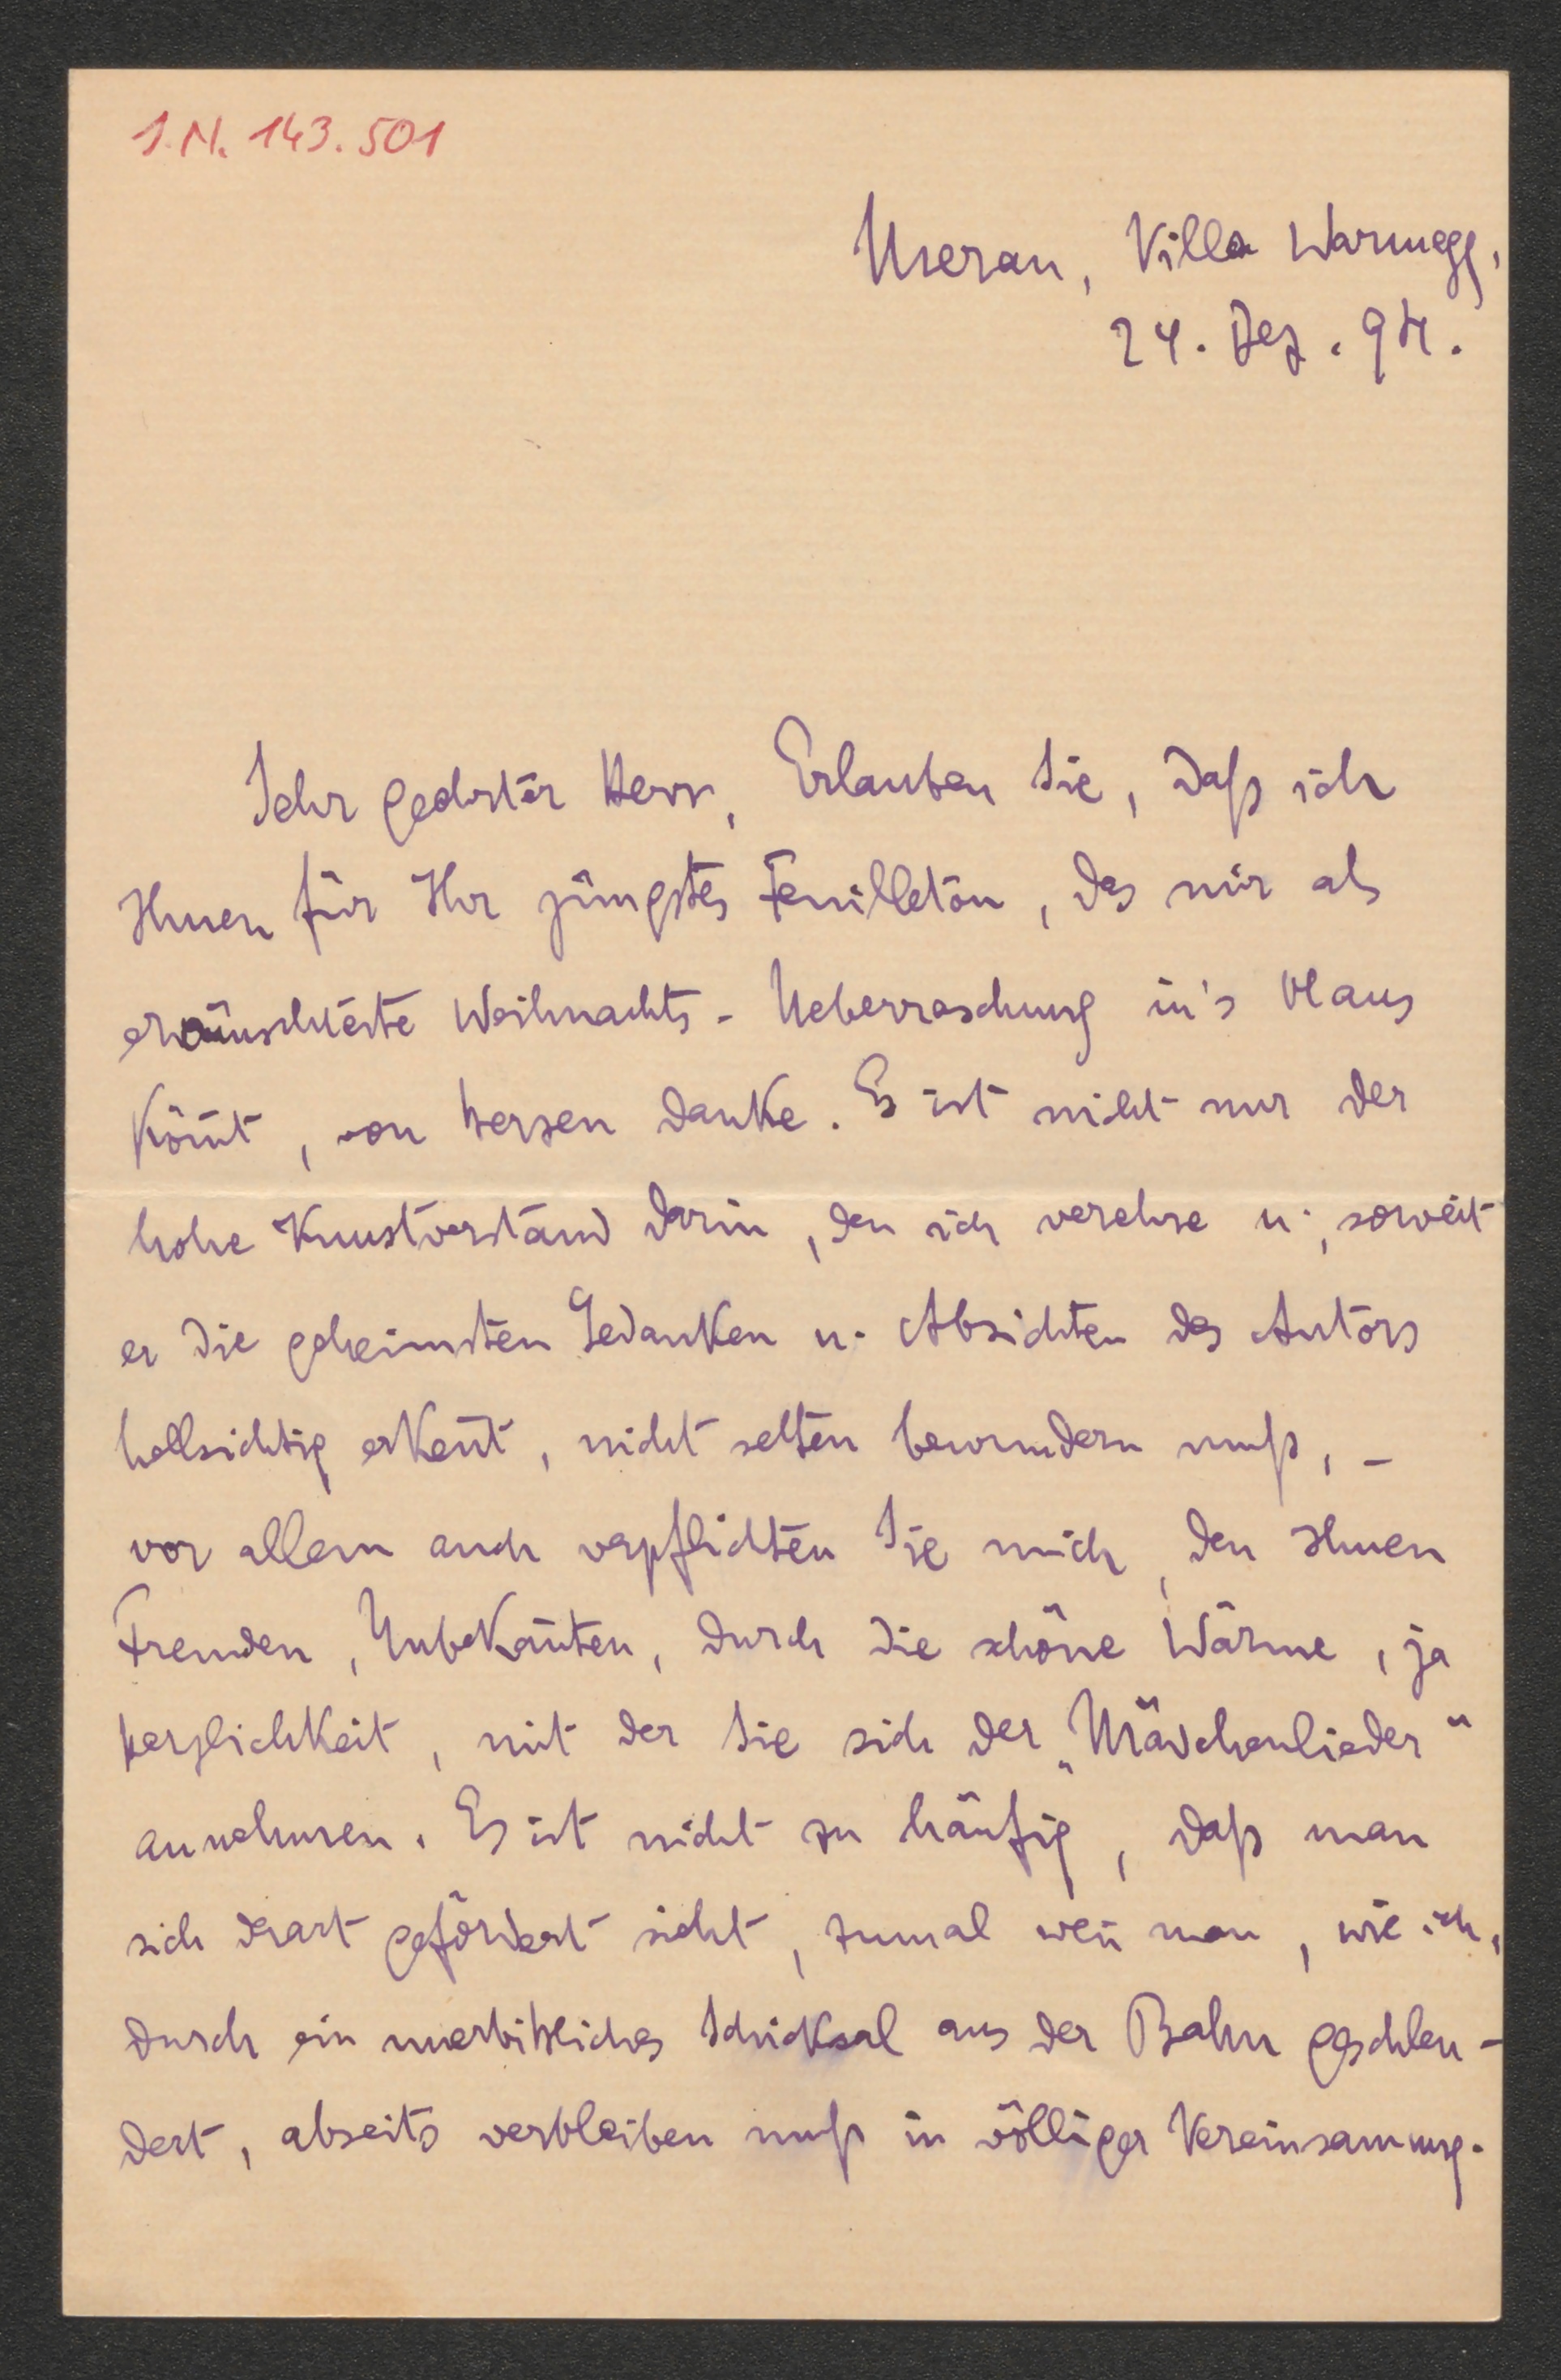 I.N. 143.501
Meran, Villa Warmegg,
24. Dez. 94.
Sehr geehrter Herr, Erlauben Sie, daß ich
Ihnen für Ihr jüngstes Feuilleton, das mir als
erwünschteste Weihnachts-Ueberraschung in's Haus
kom̄t, von Herzen danke. Es ist nicht nur der
hohe Kunstverstand darin, den ich verehre u., soweit
er die geheimsten Gedanken u. Absichten des Autors
hellsichtig erken̄t, nicht selten bewundern muß, –
vor allem auch verpflichten Sie mich, den Ihnen
Fremden, Unbekan̄ten, durch die schöne Wärme, ja
Herzlichkeit, mit der Sie sich der „Mädchenlieder“
annehmen. Es ist nicht zu häufig, daß man
sich derart gefördert sieht, zumal wen̄ man, wie ich,
durch ein unerbittliches Schicksal aus der Bahn geschleu-
dert, abseits verbleiben muß in völliger Vereinsamung.